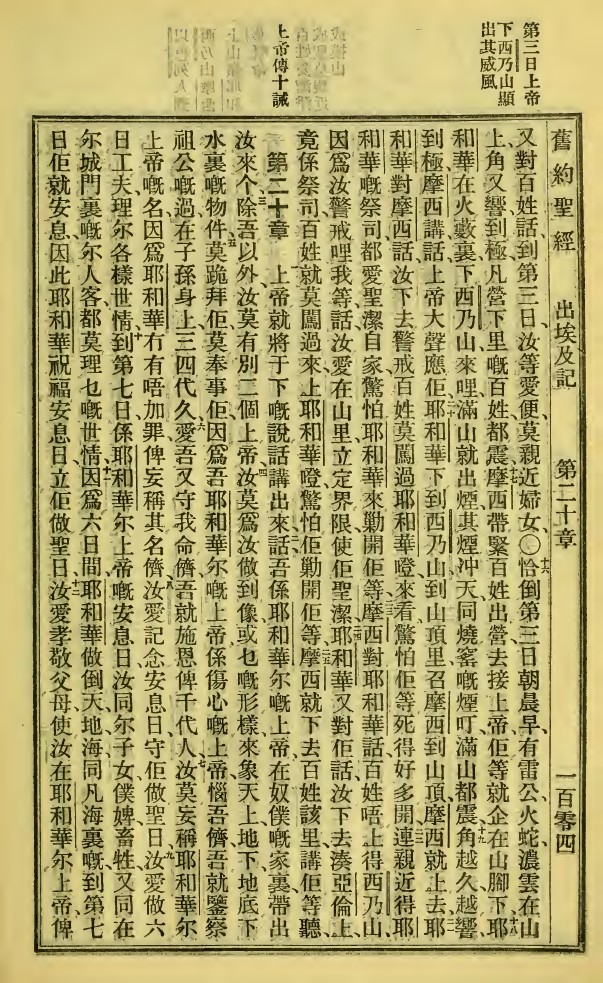 第三日上帝
下西乃山顯
出其威風
上帝傳十誡
舊約聖經 出埃及記 第二十章 一百零四
又對百姓話到第三日汝等愛便莫親近婦女〇恰倒第三日朝晨早有雷公火蛇濃雲在山
上角又響到極凡營下里嘅百姓都震摩西帶緊百姓出營去接上帝佢等就企在山腳下耶
和華在火藪裏下西乃山來哩滿山就出煙其煙冲天同燒窰嘅煙叮滿山都震角越久越響
到極摩西講話上帝大聲應佢耶和華下到西乃山到山頂里召摩西到山頂摩西就上去耶
和華對摩西話汝下去警戒百姓莫闖過耶和華嶝來看驚怕佢等死得好多開連親近得耶
和華嘅祭司都愛聖潔自家驚怕耶和華來勦開佢等摩西對耶和華話百姓唔上得西乃山
因爲汝警戒哩我等話汝愛在山里立定界限使佢聖潔耶和華又對佢話汝下去湊亞倫上
竟係祭司百姓就莫闖過來上耶和華嶝驚怕佢勦開佢等摩西就下去百姓該里講佢等聽
第二十章 上帝就將于下嘅說話講出來話吾係耶和華尔嘅上帝在奴僕嘅家裏帶出
汝來个除吾以外汝莫有別二個上帝汝莫爲汝做到像或乜嘅形樣來象天上地下地底下
水裏嘅物件莫跪拜佢莫奉事佢因爲吾耶和華尔嘅上帝係傷心嘅上帝惱吾儕吾就鑒察
祖公嘅過在子孫身上三四代久愛吾又守我命儕吾就施恩俾千代人汝莫妄稱耶和華尔
上帝嘅名因爲耶和華冇有唔加罪俾妄稱其名儕汝愛記念安息日守佢做聖日汝愛做六
日工夫理尔各樣世情到第七日係耶和華尔上帝嘅安息日汝同尔子女僕婢畜牲又同在
尔城門裏嘅尔人客都莫理乜嘅世情因爲六日間耶和華做倒天地海同凡海裏嘅到第七
日佢就安息因此耶和華祝福安息日立佢做聖日汝愛孝敬父母使汝在耶和華尔上帝俾